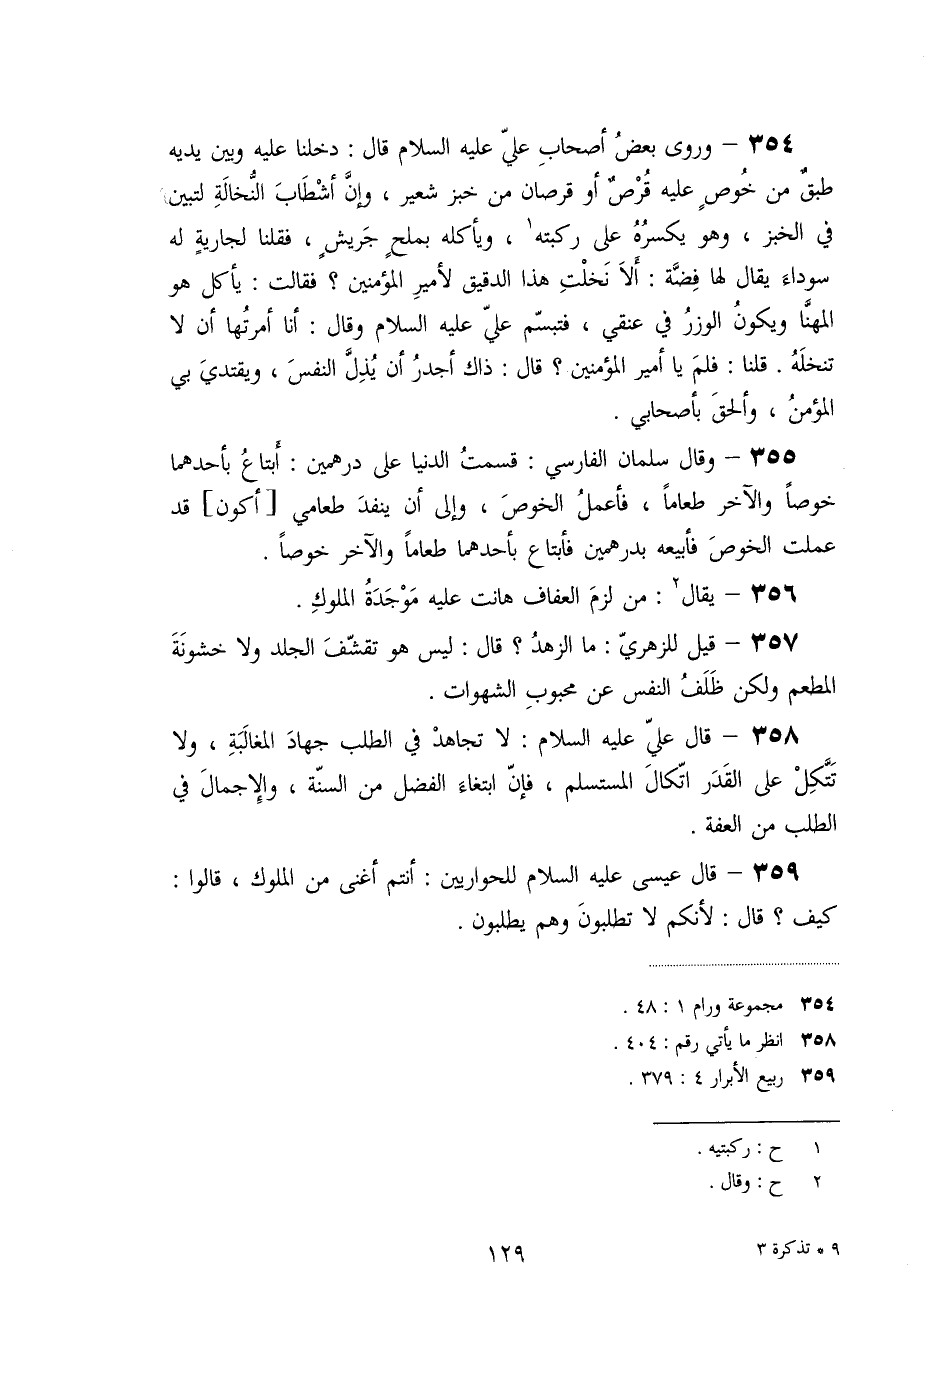 ٣٥٤ – وروى بعضُ أصحابِ عليّ عليه السلام قال : دخلنا عليه وبين يديه
طبقٌ من خُوصٍ عليه قُرْصٌ أو قرصان من خبز شعير ، وإنَّ أشْطَابَ النُّخالَةِ لتبين
في الخبز ، وهو يكسرُهُ على ركبته١ ، ويأكله بملحٍ جَريشٍ ، فقلنا لجاريةٍ له
سوداءَ يقال لها فِضَّة : أَلاَ نَخلْتِ هذا الدقيق لأميرِ المؤمنين ؟ فقالت : يأكل هو
المهنَّا ويكونُ الوزرُ في عنقي ، فتبسّم عليّ عليه السلام وقال : أنا أمرتُها أن لا
تنخلَهُ . قلنا : فلمَ يا أمير المؤمنين ؟ قال : ذاك أجدرُ أن يُذِلَّ النفسَ ، ويقتديَ بي
المؤمنُ ، وألحقَ بأصحابي .
٣٥٥ – وقال سلمان الفارسي : قسمتُ الدنيا على درهمين : أَبتاعُ بأحدهما
خوصاً والآخر طعاماً ، فأعملُ الخوصَ ، وإلى أن ينفدَ طعامي [أكون] قد
عملت الخوصَ فأبيعه بدرهمين فأبتاع بأحدهما طعاماً والآخر خوصاً .
٣٥٦ – يقال٢ : من لزمَ العفاف هانت عليه مَوْجَدَةُ الملوكِ .
٣٥٧ – قيل للزهريّ : ما الزهدُ ؟ قال : ليس هو تقشّفَ الجلد ولا خشونَةَ
المطعم ولكن ظَلَفُ النفس عن محبوبِ الشهوات .
٣٥٨ – قال عليّ عليه السلام : لا تجاهدْ في الطلب جهادَ المغالَبَةِ ، ولا
تَتَّكِلْ على القَدَر اتّكالَ المستسلم ، فإنّ ابتغاءَ الفضل من السنّة ، والإجمالَ في
الطلب من العفة .
٣٥٩ – قال عيسى عليه السلام للحواريين : أنتم أغنى من الملوك ، قالوا :
كيف ؟ قال : لأنكم لا تطلبونَ وهم يطلبون .
٣٥٤ مجموعة ورام ١ : ٤٨ .
٣٥٨ انظر ما يأتي رقم : ٤٠٤ .
٣٥٩ ربيع الأبرار ٤ : ٣٧٩ .
١ ح : ركبتيه .
٢ ح : وقال .
٩ * تذكرة ٣
١٢٩